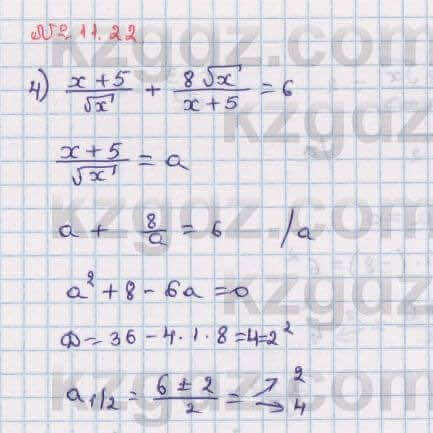 № 11.22
4) (x+5)/√x + 8√x/(x+5) = 6
(x+5)/√x = a
a + 8/a = 6 /a
a² + 8 - 6a = 0
D = 36 - 4·1·8 = 4 = 2²
a1/2 = (6 ± 2)/2 = → 2
→ 4
kzgdz.com